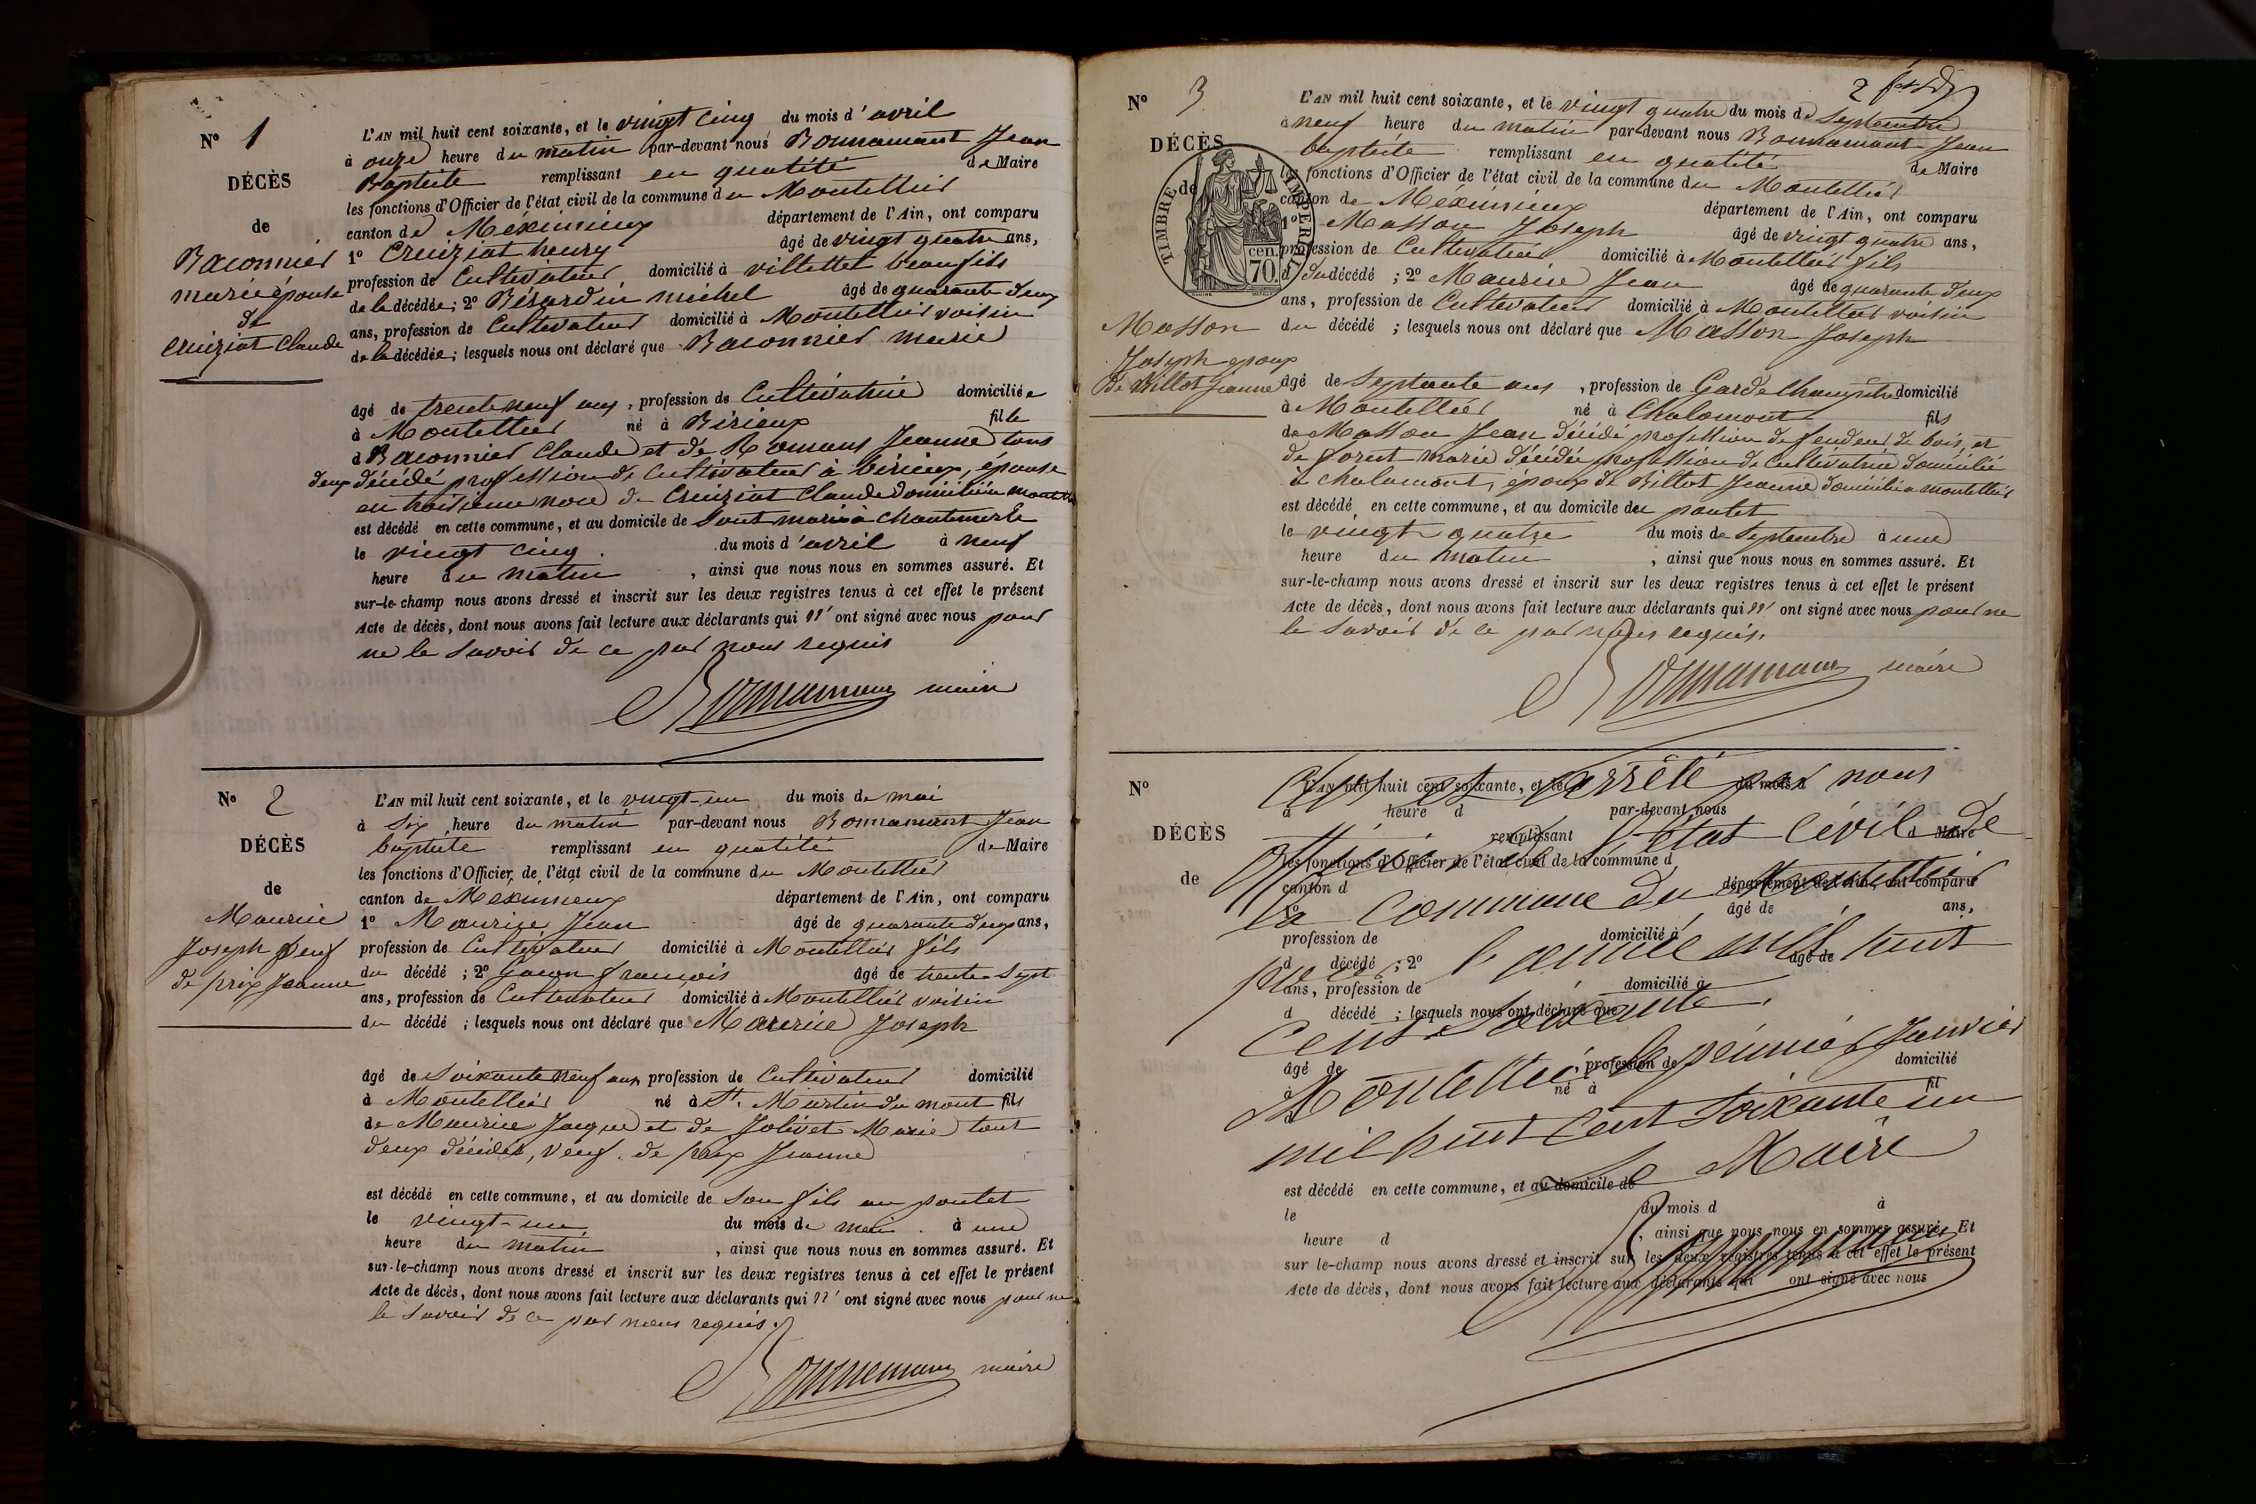 N° 1
DÉCÈS
de
Baconnier
marie épouse
de
Cruiziat Claude
L'AN mil huit cent soixante, et le vingt cinq du mois d'avril
à onze heure du matin par-devant nous Bonnamant Jean
Baptiste remplissant en qualité de Maire
les fonctions d'Officier de l'état civil de la commune du Montellier
canton de Méximieux département de l'Ain, ont comparu
1° Cruiziat henry âgé de vingt quatre ans,
profession de Cultivateur domicilié à villettet beaufils
de la décédée; 2° Bérardin michel âgé de quarante deux
ans, profession de Cultivateur domicilié à Montellier voisin
de la décédée; lesquels nous ont déclaré que Baconnier marie
âgé de trente neuf ans, profession de Cultivatrice domiciliée
à Montellier né à Birieux fille
d Baconnier Claude et de Romans Jeanne tous
deux décédé profession de Cultivateur à birieux, épouse
en troisieme noce de Cruiziat Claude domicilié a
est décédé en cette commune, et au domicile de Sont marie à Chantemerle
le vingt cinq du mois d'avril à neuf
heure du matin, ainsi que nous nous en sommes assuré. Et
sur-le-champ nous avons dressé et inscrit sur les deux registres tenus à cet effet le présent
Acte de décès, dont nous avons fait lecture aux déclarants qui n' ont signé avec nous pour
ne le Savoir de ce par nous requis
Bonnamant maire
N° 2
DÉCÈS
de
Maurice
Joseph Veuf
de prix Jeanne
L'AN mil huit cent soixante, et le vingt-un du mois de mai
à Six heure du matin par-devant nous Bonnamant Jean
baptiste remplissant en qualité de Maire
les fonctions d'Officier de l'état civil de la commune du Montellier
canton de Méximieux département de l'Ain, ont comparu
1° Maurice Jean âgé de quarante deux ans,
profession de Cultivateur domicilié à Montellier fils
du décédé; 2° Gacon françois âgé de trente Sept
ans, profession de Cultivateur domicilié à Montellier voisin
du décédé; lesquels nous ont déclaré que Maurice Joseph
âgé de Soixante neuf ans profession de Cultivateur domicilié
à Montellier né à St. Martin du mont fils
de Maurice Jacque et de Jolivet Marie tout
deux décidés, veuf de prix Jeanne
est décédé en cette commune, et au domicile de Son fils au poutet
le vingt-un du mois de mai à une
heure du matin, ainsi que nous nous en sommes assuré. Et
sur-le-champ nous avons dressé et inscrit sur les deux registres tenus à cet effet le présent
Acte de décès, dont nous avons fait lecture aux déclarants qui n' ont signé avec nous pour ne
le Savoir de ce par nous requis.
Bonnamant maire
N° 3
DÉCÈS
de
TIMBRE IMPERIAL
cen.
70.
Masson
Joseph epoux
de Billot Jeanne
L'AN mil huit cent soixante, et le vingt quatre du mois de Septembre
à neuf heure du matin par-devant nous Bonnamant Jean
baptiste remplissant en qualité de Maire
les fonctions d'Officier de l'état civil de la commune du Montellier
canton de Méximieux département de l'Ain, ont comparu
1° Masson Joseph âgé de vingt quatre ans,
profession de Cultivateur domicilié à Montellier fils
d du décédé; 2° Maurice Jean âgé de quarante deux
ans, profession de Cultivateur domicilié à Montellier voisin
du décédé; lesquels nous ont déclaré que Masson Joseph
âgé de Septante ans, profession de Garde Champêtre domicilié
à Montellier né à Chalamont fils
de Masson Jean décédé profession de fendeur de bois, et
de forest marie décédée profession de Cultivatrice domicilié
à Chalamont, époux de Billot Jeanne domicilié a montellier
est décédé en cette commune, et au domicile du poutet
le vingt quatre du mois de Septembre à une
heure du matin, ainsi que nous nous en sommes assuré. Et
sur-le-champ nous avons dressé et inscrit sur les deux registres tenus à cet effet le présent
Acte de décès, dont nous avons fait lecture aux déclarants qui n' ont signé avec nous pour ne
le Savoir de ce par nous requis.
Bonnamant maire
N°
DÉCÈS
de
L'AN mil huit cent soixante, et le du mois d
à heure d par-devant nous
remplissant d Maire
les fonctions d'Officier de l'état civil de la commune d
canton d département de l'Ain, ont comparu
1° âgé de ans,
profession de domicilié à
d décédé; 2° âgé de
ans, profession de domicilié à
d décédé; lesquels nous ont déclaré que
âgé de profession de domicilié
à né à fil
d
est décédé en cette commune, et au domicile de
le du mois d à
heure d, ainsi que nous nous en sommes assuré. Et
sur le-champ nous avons dressé et inscrit sur les deux registres tenus à cet effet le présent
Acte de décès, dont nous avons fait lecture aux déclarants qui ont signé avec nous
Clos et arrêté par nous
Officier de l'état Civil de
la Commune du Montellier
pour l'année mil huit
Cent Soixante.
Montellier le premier Janvier
mil huit Cent Soixante un
Le Maire
Bonnamant